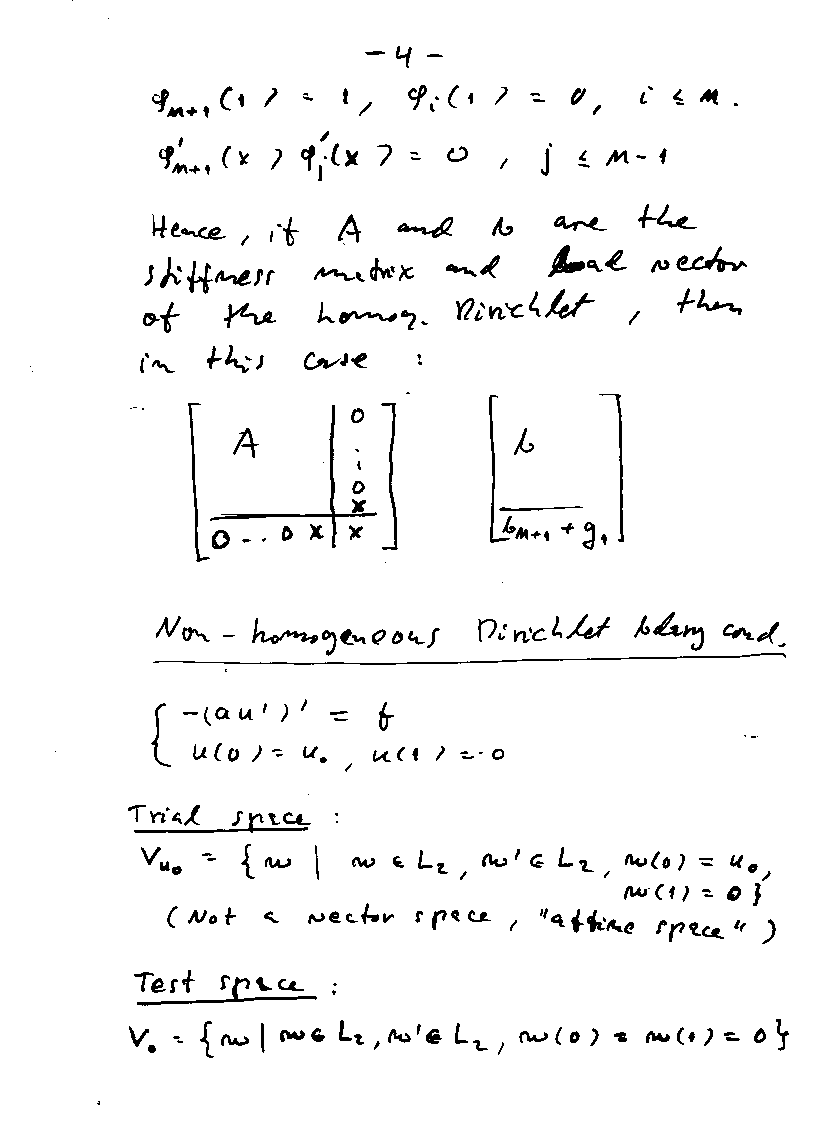 - 4 -
φ_{M+1}(1) = 1, φ_i(1) = 0, i ≤ M.
φ'_{M+1}(x) φ'_j(x) = 0, j ≤ M-1
Hence, if A and b are the
stiffness matrix and load vector
of the homog. Dirichlet, then
in this case :
A 0 b
.
.
0
x
0 -.. 0 x x b_{M+1} + g_1
Non-homogeneous Dirichlet bdary cond.
{ -(au')' = f
u(0) = u_0, u(1) = 0
Trial space :
V_{u_0} = { w | w ∈ L_2, w' ∈ L_2, w(0) = u_0,
w(1) = 0 }
(Not a vector space, "affine space")
Test space :
V_0 = { w | w ∈ L_2, w' ∈ L_2, w(0) = w(1) = 0 }